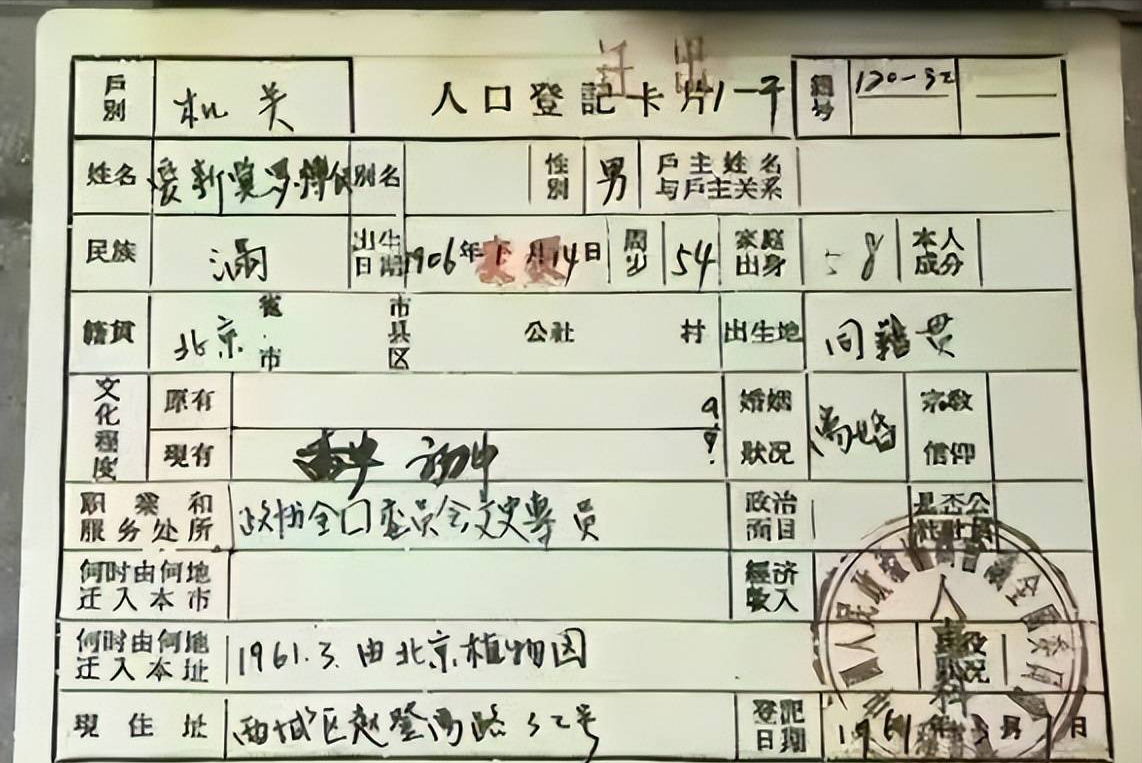 戶別 机关 人口登記卡片 編号 120-32
姓名 爱新觉罗 別名 性別 男 戶主姓名与戶主关系
民族 满 出生日期 1906年1月14日 周岁 54 家庭出身 本人成分
籍貫 北京 省市 市县区 公社 村 出生地 同籍贯
文化程度 原有 婚姻狀况 宗教信仰
現有 初中
职業和服务处所 政协全口委员会文史專员 政治面目 是否公社社員
何时由何地迁入本市 經济收入
何时由何地迁入本址 1961.3.由北京植物园
現住址 西城区赵登禹路32号 登記日期 1961年3月7日
人事科